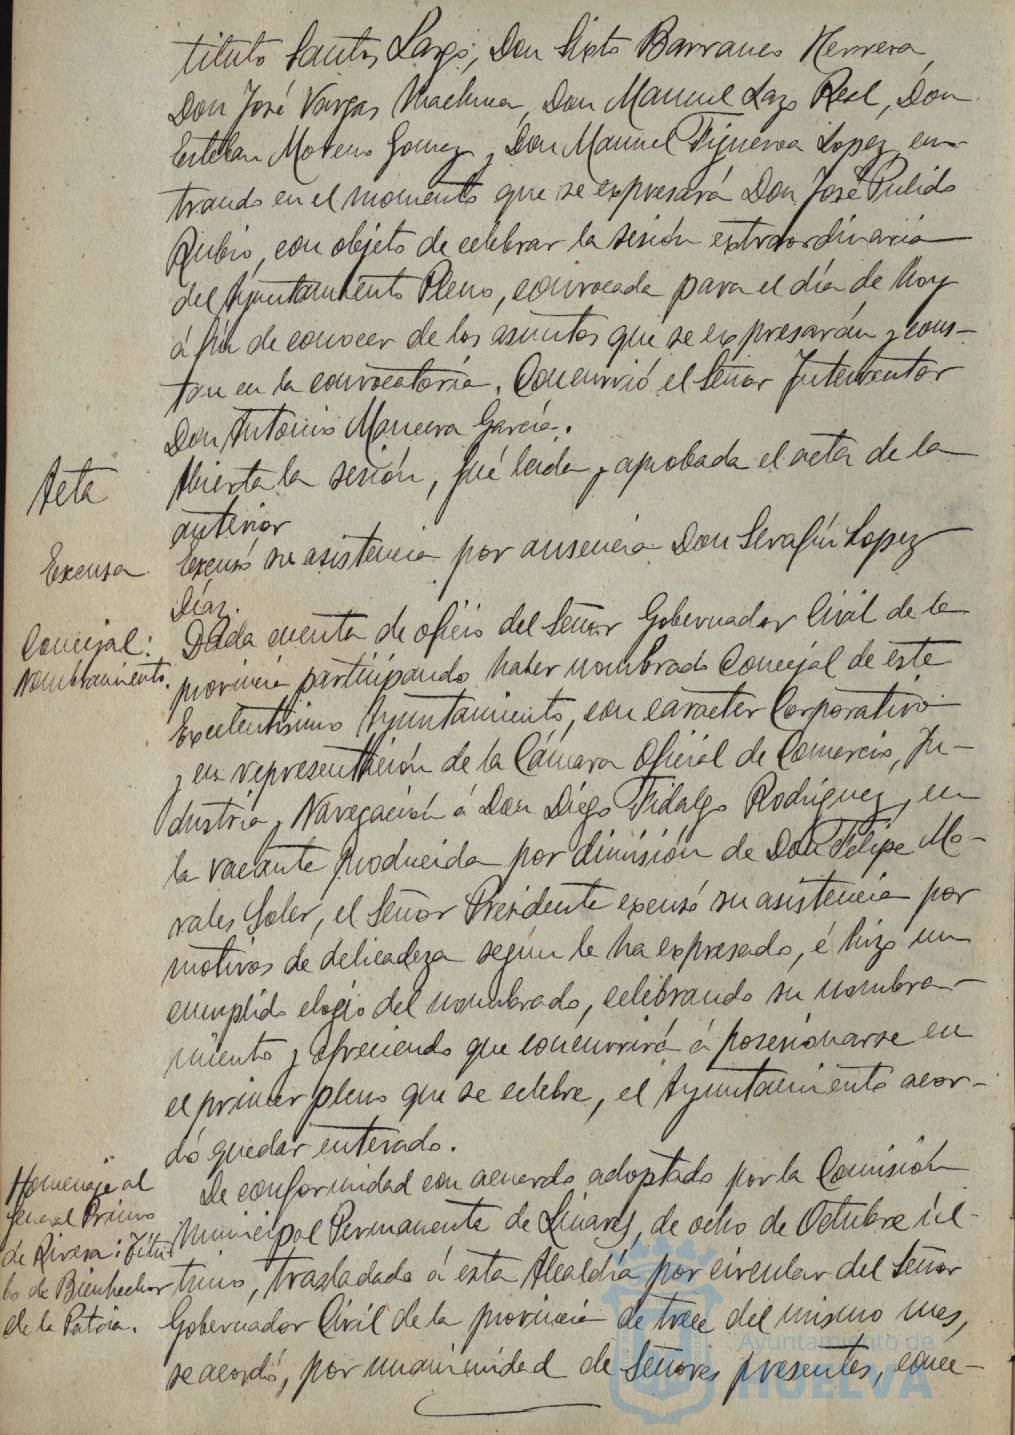 tituto Santos Largo, Don Sixto Barranco Herrera,
Don José Vargas Machuca, Don Manuel Lazo Real, Don
Esteban Moreno Gomez y Don Manuel Figueroa Lopez, en-
trando en el momento que se expresará Don José Pulido
Rubio, con objeto de celebrar la sesión extraordinaria
del Ayuntamiento Pleno, convocada para el día de hoy
á fin de conocer de los asuntos que se expresarán y cons-
tan en la convocatoria. Concurrió el Señor Interventor
Don Antonio Mancera García.
Acta
Abierta la sesión, fué leida y aprobada el acta de la
anterior
Excusa
Excusó su asistencia por ausencia Don Serafín Lopez
Díaz.
Concejal:
Nombramiento.
Dada cuenta de oficio del Señor Gobernador Civil de la
provincia participando haber nombrado Concejal de este
Excelentísimo Ayuntamiento, con caracter Corporativo
y en representación de la Cámara Oficial de Comercio, In-
dustria y Navegación á Don Diego Fidalgo Rodríguez, en
la vacante producida por dimisión de Don Felipe Mo-
rales Soler, el Señor Presidente excusó su asistencia por
motivos de delicadeza según le ha expresado, é hizo un
cumplido elogio del nombrado, celebrando su nombra-
miento y ofreciendo que concurrirá á posesionarse en
el primer pleno que se celebre, el Ayuntamiento acor-
dó quedar enterado.
Homenaje al
General Primo
de Rivera: Títu
lo de Bienhechor
de la Patria.
De conformidad con acuerdo adoptado por la Comisión
Municipal Permanente de Linares, de ocho de Octubre úl-
timo, trasladado á esta Alcaldía por circular del Señor
Gobernador Civil de la provincia de trece del mismo mes,
se acordó, por unanimidad de Señores presentes, conce-
Ayuntamiento de
HUELVA